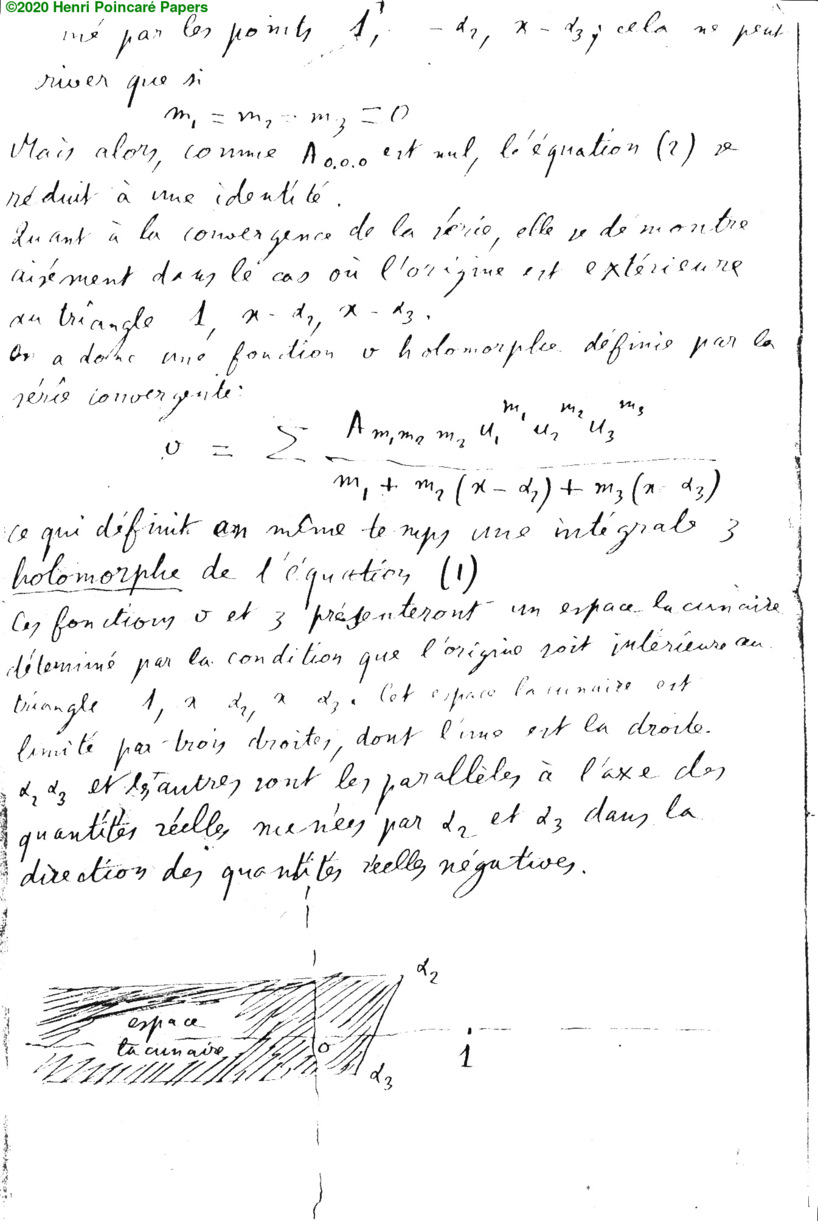 ©2020 Henri Poincaré Papers
mé par les points 1, - α₂, x - α₃ ; cela ne peut
river que si
m₁ = m₂ = m₃ = 0
Mais alors, comme A₀.₀.₀ est nul, l'équation (2) se
réduit à une identité.
Quant à la convergence de la série, elle se démontre
aisément dans le cas où l'origine est extérieure
au triangle 1, x - α₂, x - α₃.
On a donc une fonction v holomorphe définie par la
série convergente:
v = Σ A m₁ m₂ m₃ u₁^m₁ u₂^m₂ u₃^m₃ / m₁ + m₂ (x - α₂) + m₃ (x α₃)
ce qui définit en même temps une intégrale z
holomorphe de l'équation (1)
Ces fonctions v et z présenteront un espace lacunaire
déterminé par la condition que l'origine soit intérieure au
triangle 1, x α₂, x α₃. Cet espace lacunaire est
limité par trois droites, dont l'une est la droite
α₂ α₃ et les autres sont les parallèles à l'axe des
quantités réelles menées par α₂ et α₃ dans la
direction des quantités réelles négatives.
α₂
espace
lacunaire
O
1
α₃